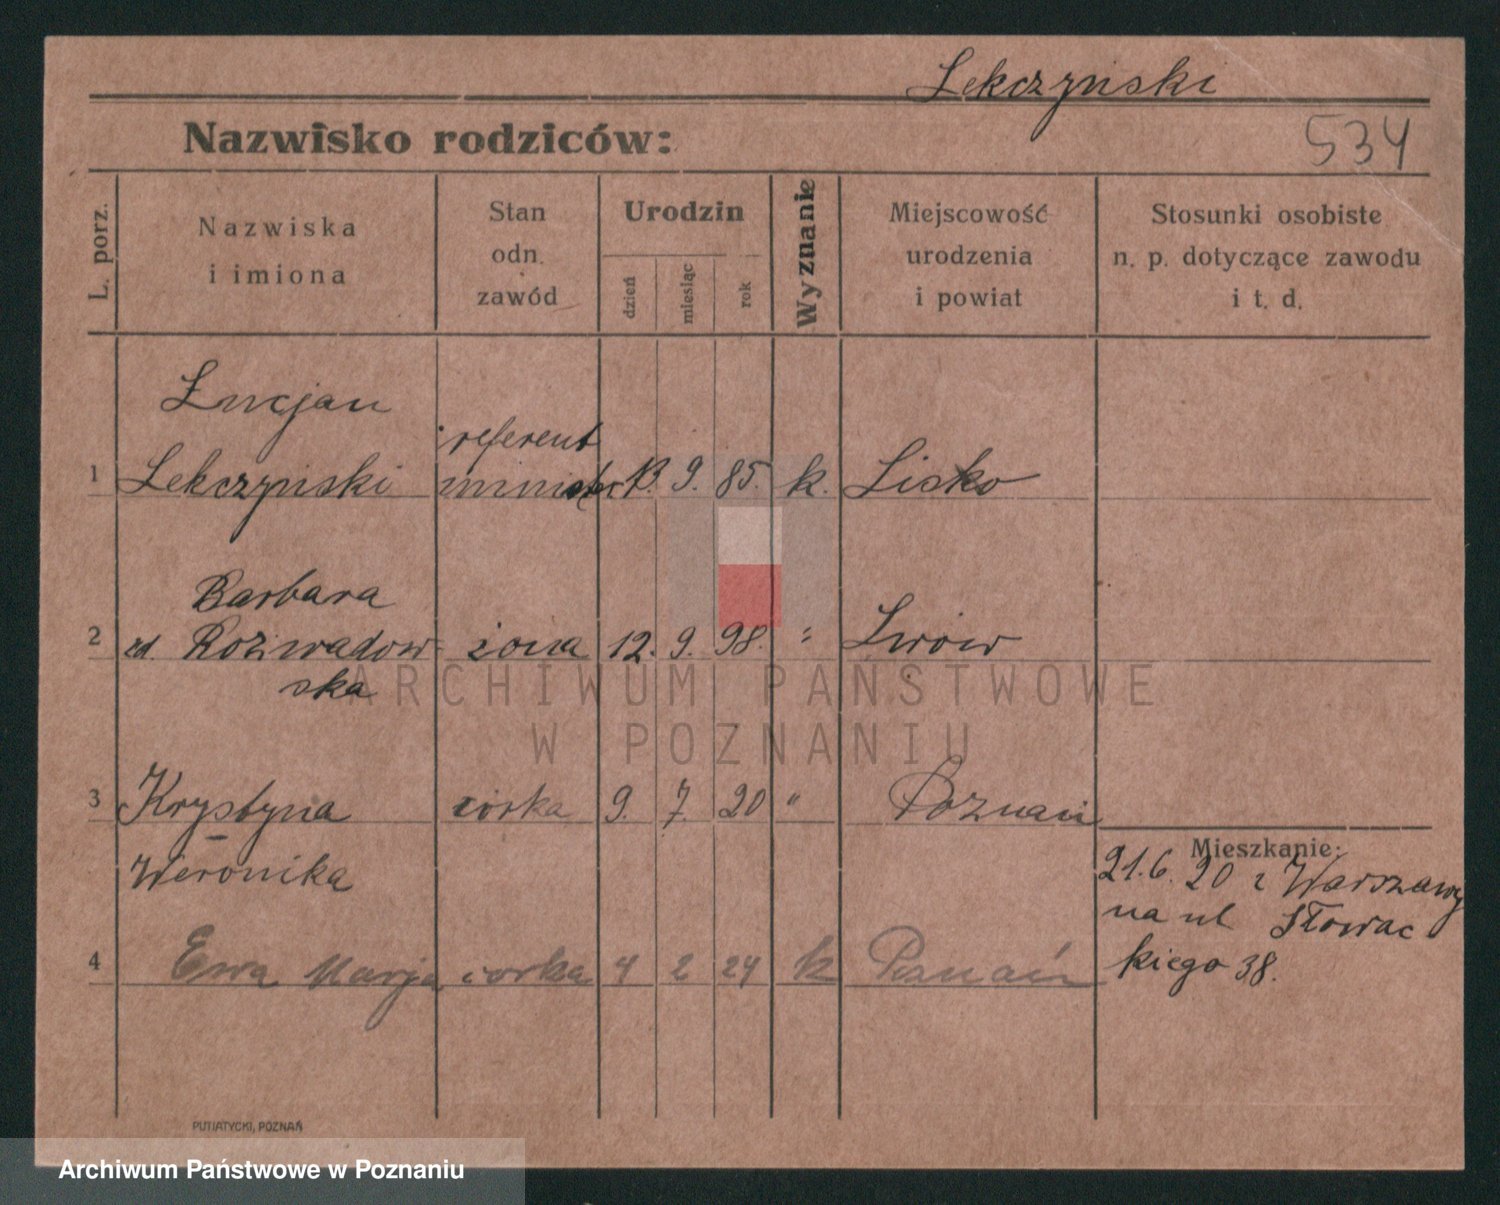 Lekczyński
Nazwisko rodziców:
534
L. porz.
Nazwiska
i imiona
Stan
odn.
zawód
Urodzin
dzień
miesiąc
rok
Wyznanie
Miejscowość
urodzenia
i powiat
Stosunki osobiste
n. p. dotyczące zawodu
i t. d.
Łucjan
referent
1 Lekczyński minister. 13. 9. 85. k. Lisko
Barbara
2 zd. Rozwadow- żona 12. 9. 98. " Lwów
ska
ARCHIWUM PAŃSTWOWE
W POZNANIU
3 Krystyna córka 9. 7. 20 " Poznań
Weronika
Mieszkanie:
21.6. 20 z Warszawy
na ul Słowac
kiego 38.
4 Ewa Marja córka 4 2 24 k Poznań
PUTIATYCKI, POZNAŃ
Archiwum Państwowe w Poznaniu